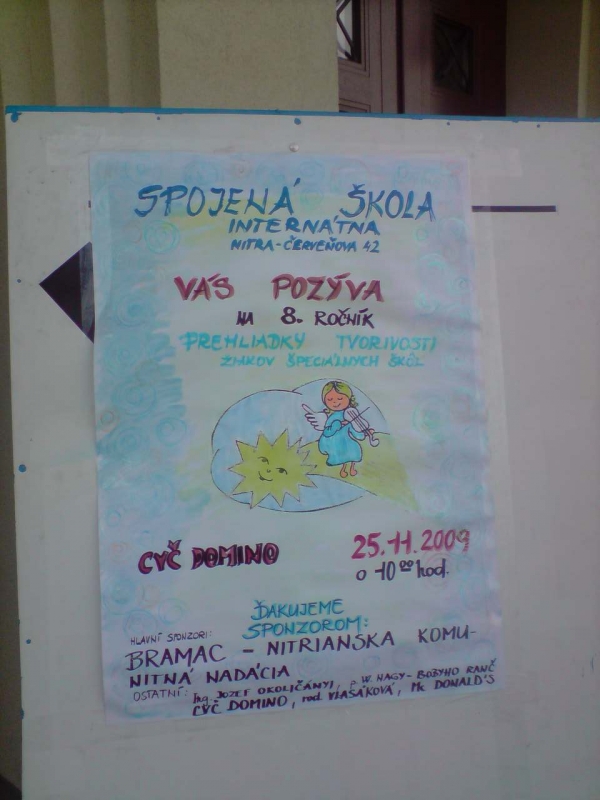 SPOJENÁ ŠKOLA
INTERNÁTNA
NITRA-ČERVEŇOVA 42
VÁS POZÝVA
NA 8. ROČNÍK
PREHLIADKY TVORIVOSTI
ŽIAKOV ŠPECIÁLNYCH ŠKÔL
CVČ DOMINO
25.11.2009
o 10⁰⁰ hod.
ĎAKUJEME
SPONZOROM:
HLAVNÍ SPONZORI:
BRAMAC - NITRIANSKA KOMU-
NITNÁ NADÁCIA
OSTATNÍ: Ing. JOZEF OKOLIČÁNYI, p. W. NAGY - BOBYHO RANČ
CVČ DOMINO, rod. VLASÁKOVÁ, Mc DONALD'S